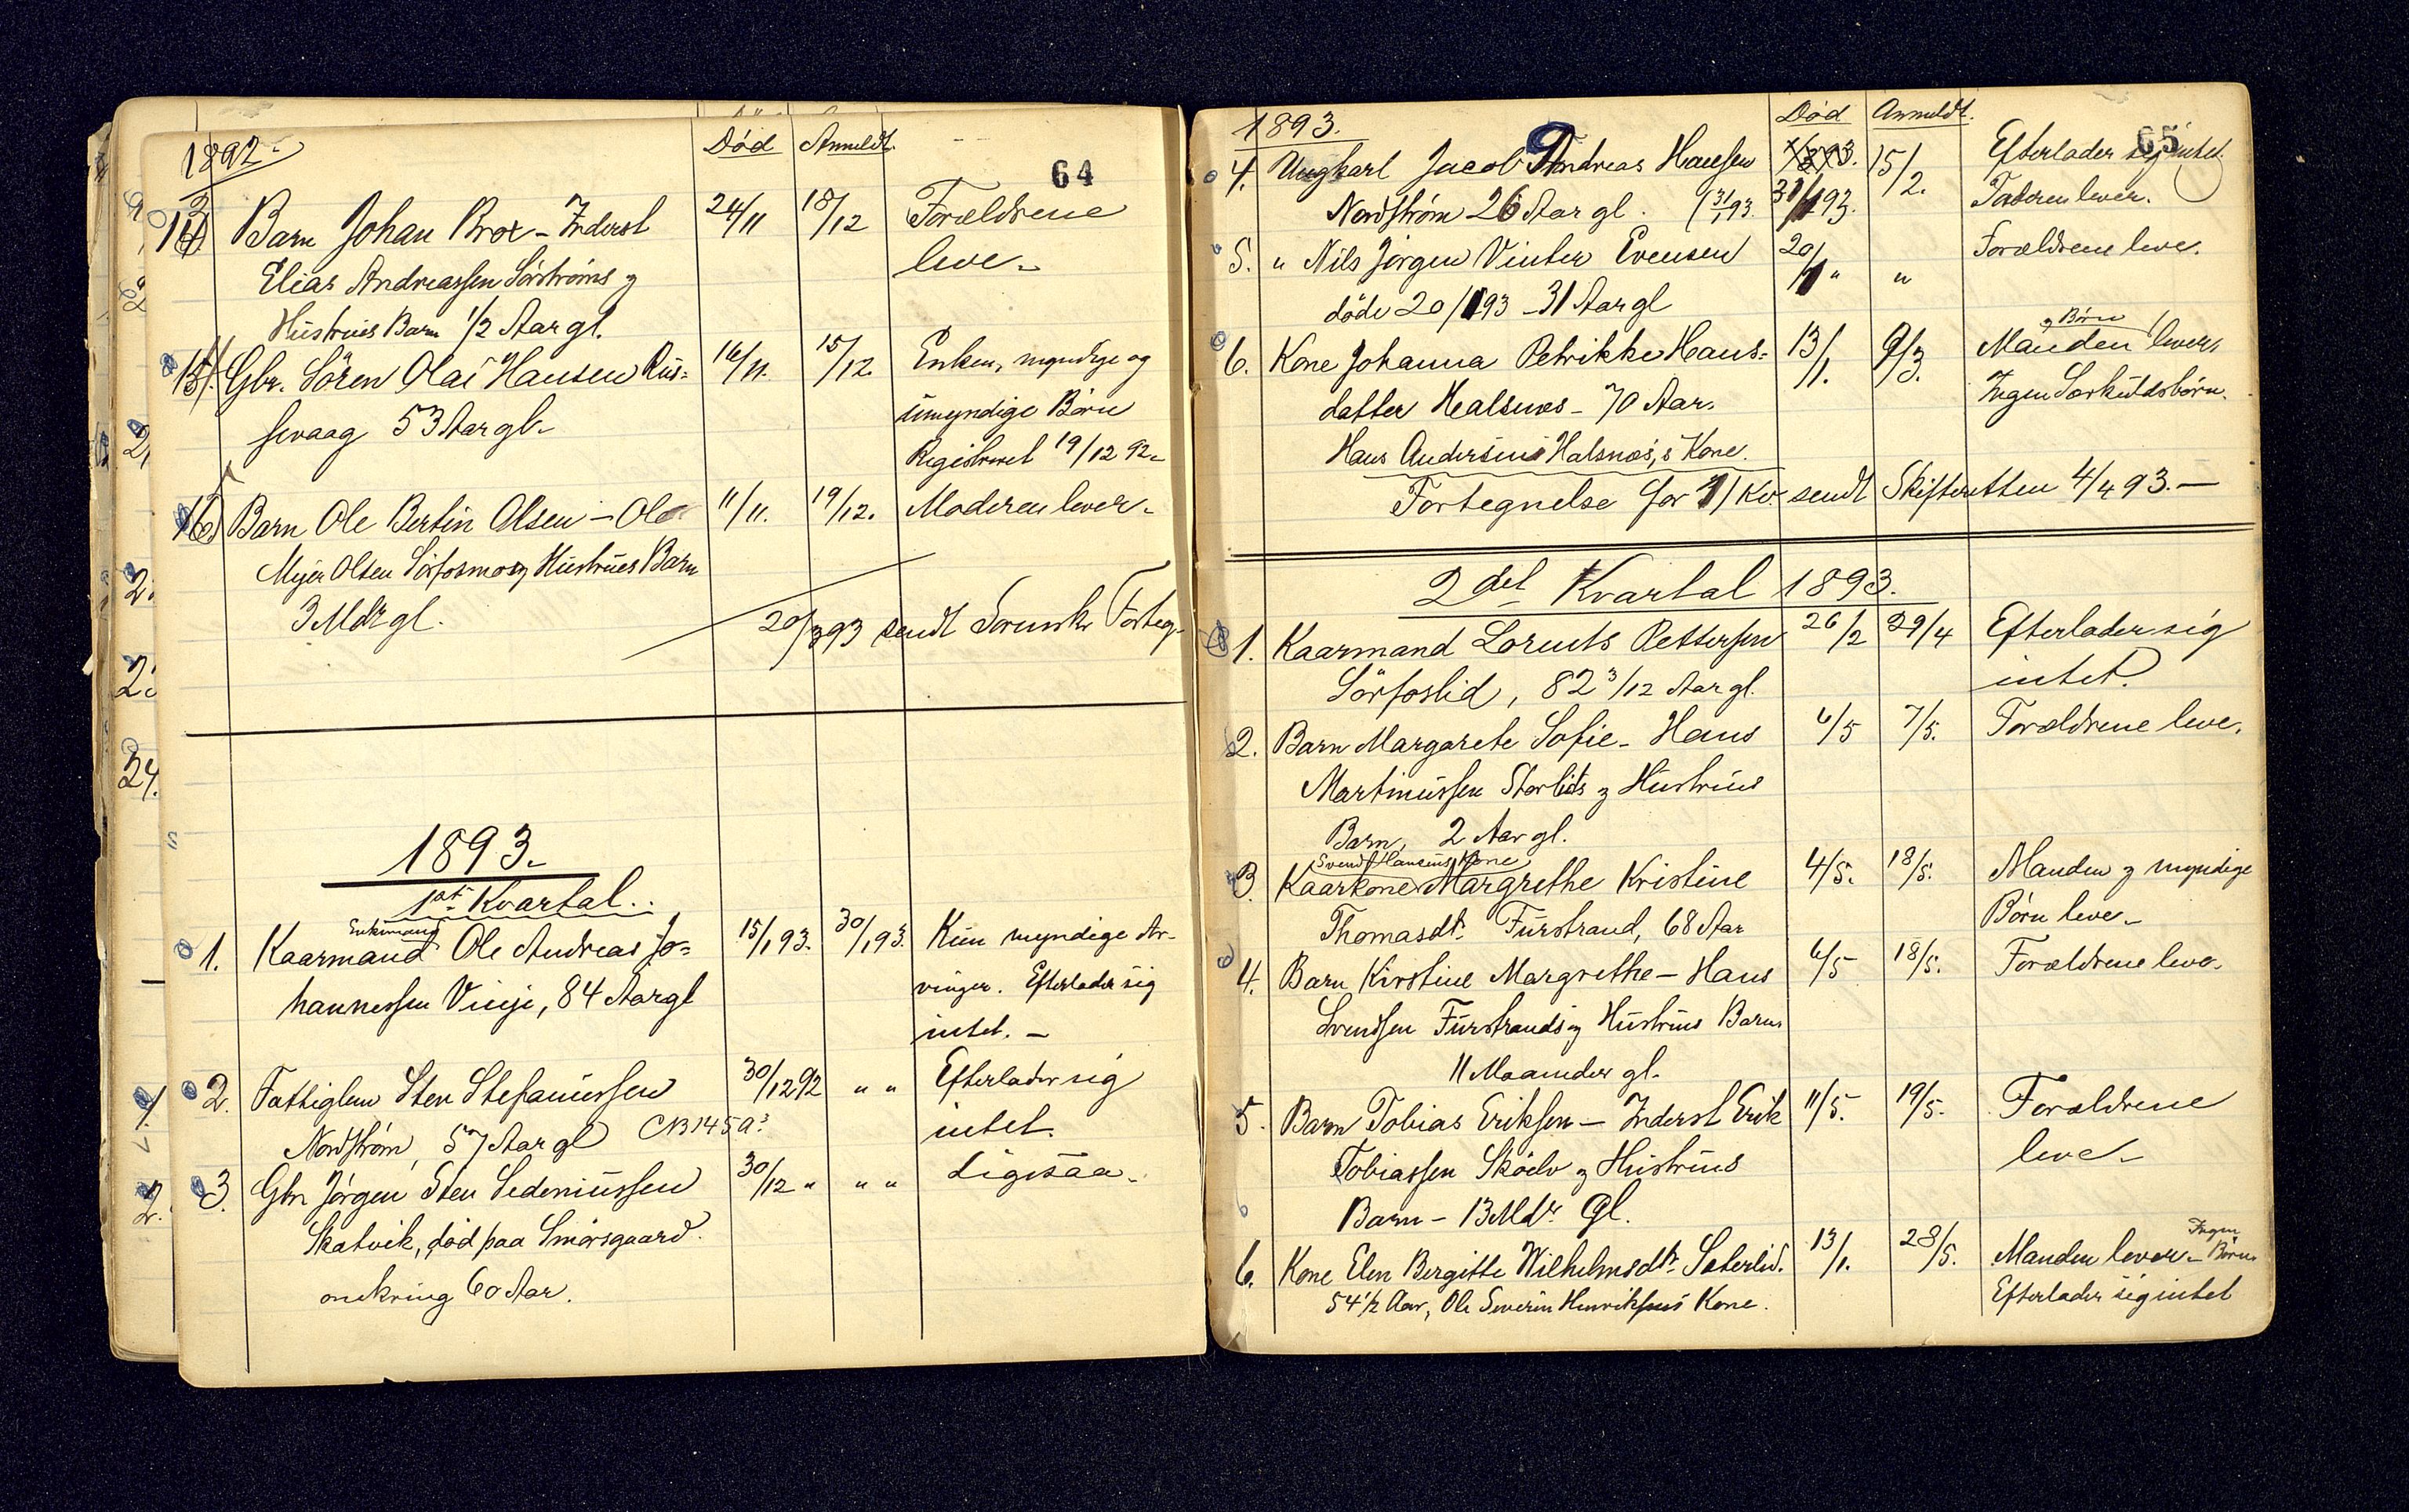 1892.
Død Anmeldt.
64
14 Barn Johan Brox - Inderst 24/11 18/12 Forældrene
Elias Andreassen Sörströms og leve -
Hustrues Barn 1/2 Aar gl.
15. Gbr. Sören Olai Hansen Rus= 16/11. 15/12. Enken, myndige og
sevaag 53 Aar gl. umyndige Börn
Registreret 19/12 92.
16 Barn Ole Bertin Olsen - Ole 11/11. 19/12. Moderen lever -
Mejer Olsen Sörfosmo og Hustrues Barn
3 Mdr gl.
20/3 93 sendt Sorenskr Forteg.
1893.
1ste Kvartal.
Enkemand
1. Kaarmand Ole Andreas Jo= 15/1 93. 30/1 93. Kun myndige Ar-
hannessen Vinje, 84 Aar gl vinger. Efterlader sig
intet. -
2. Fattiglem Sten Stefanussen 30/12 92 " " Efterlader sig
Nordström, 57 Aar gl intet.
3. Gbr Jörgen Sten Sedeniussen 30/12 " " " Ligesaa -
Skatvik, död paa Smörsgaard.
omkring 60 Aar.
1893.
Død Anmeldt.
65
4. Ungkarl Jacob Andreas Hansen 15/2. Efterlader sig intet.
Nordström 26 Aar gl. (31/1 93. 31/1 93. Faderen lever.
5. " Nils Jörgen Vinter Evensen 20/1 " " Forældrene leve.
döde 20/1 93 - 31 Aar gl
og Börn
6. Kone Johanna Petrikke Hans= 13/1. 9/3. Manden lever,
datter Halsnæs - 70 Aar. Ingen Særkuldsbörn.
Hans Andersens Halsnæs,s Kone.
Fortegnelse for 1/ Kv. sendt Skifteretten 4/4 93. -
2det Kvartal 1893.
1. Kaarmand Lorents Pettersen 26/2 29/4 Efterlader sig
Sörfoslid, 82 3/12 Aar gl. intet.
2. Barn Margarete Sofie - Hans 6/5 7/5. Forældrene leve.
Martinussen Storlids og Hustrues
Barn, 2 Aar gl.
Svend Hansens Kone
3. Kaarkone Margrethe Kristine 4/5. 18/5. Manden og myndige
Thomasdtr. Furstrand, 68 Aar Börn leve -
4. Barn Kirstine Margrethe - Hans 6/5 18/5. Forældrene leve.
Svendsen Furstrands og Hustrues Barn
11 Maaneder gl.
5. Barn Tobias Eriksen - Inderst Erik 11/5. 19/5. Forældrene
Tobiassen Sköelv og Hustrues leve -
Barn - 13 Mdr. Gl.
Ingen
6. Kone Elen Bergitte Wilhelmsdtr. Sæterlid. 13/1. 28/5. Manden lever - Börn.
54 1/2 Aar, Ole Severin Henriksens Kone. Efterlader sig intet